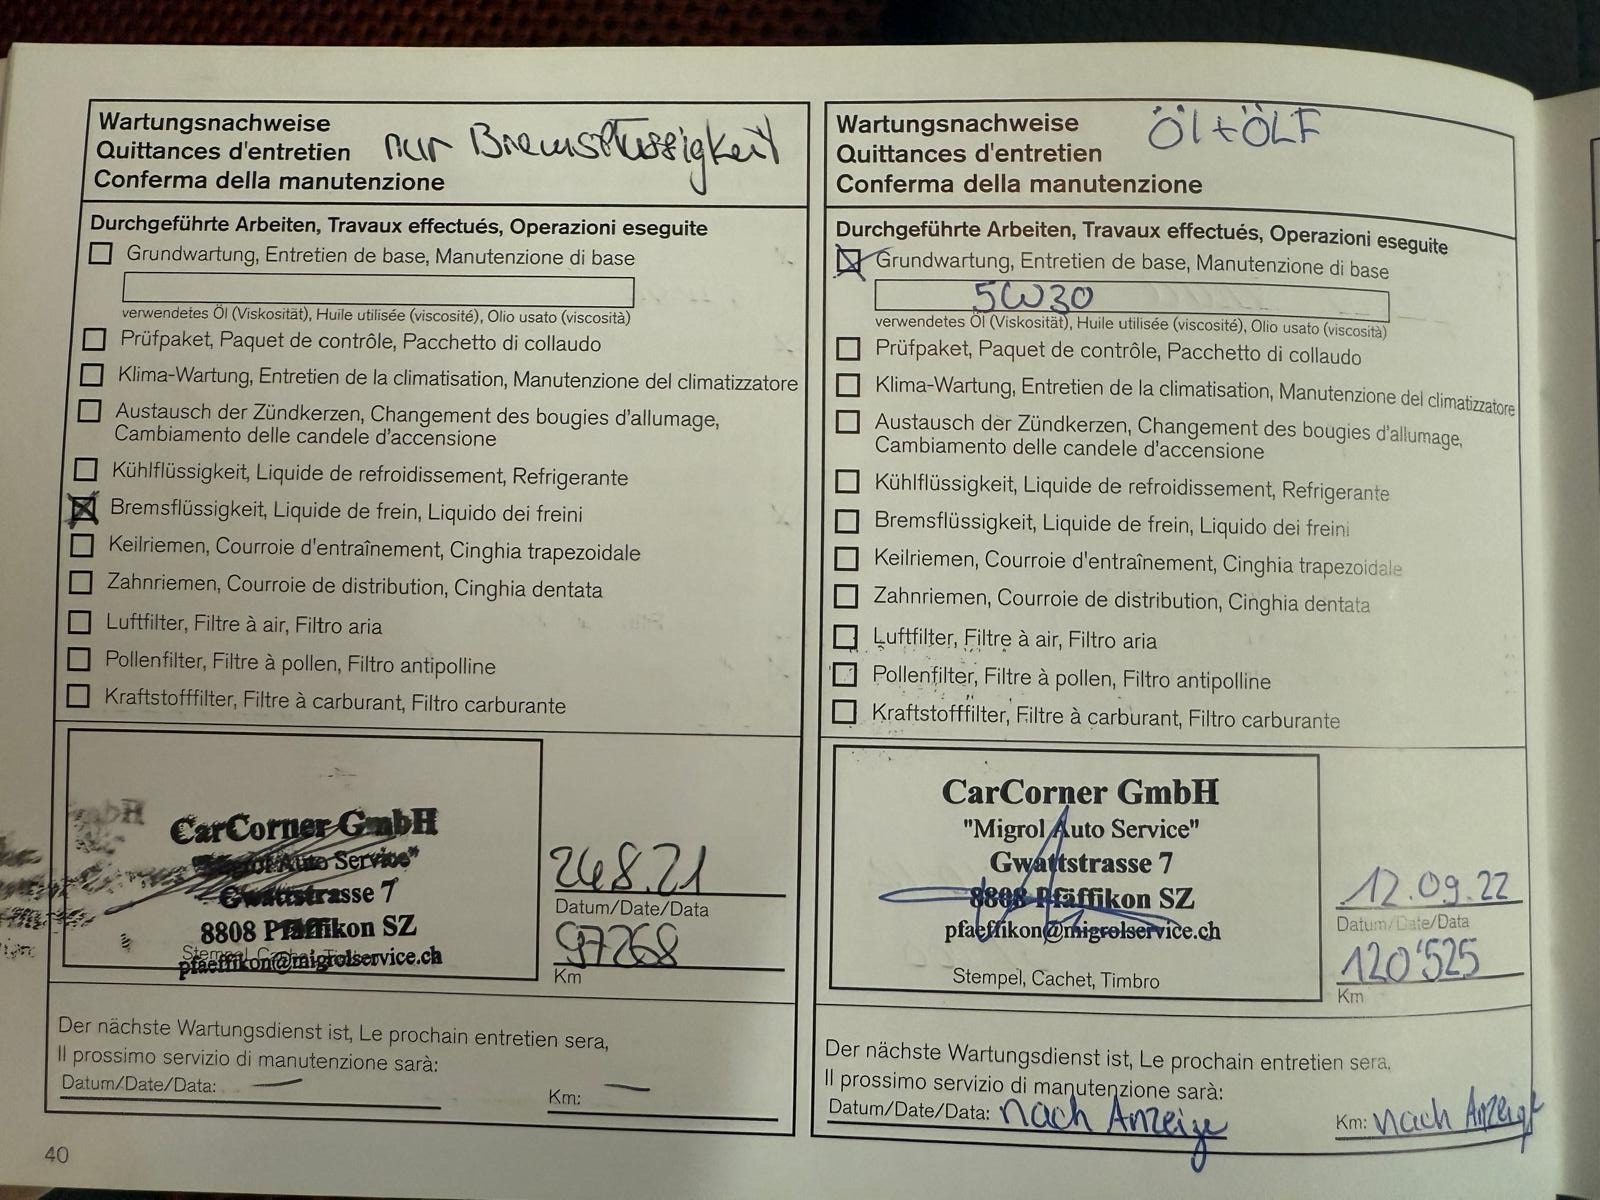 Wartungsnachweise
Quittances d'entretien
Conferma della manutenzione
nur Bremsflüssigkeit
Durchgeführte Arbeiten, Travaux effectués, Operazioni eseguite
Grundwartung, Entretien de base, Manutenzione di base
verwendetes Öl (Viskosität), Huile utilisée (viscosité), Olio usato (viscosità)
Prüfpaket, Paquet de contrôle, Pacchetto di collaudo
Klima-Wartung, Entretien de la climatisation, Manutenzione del climatizzatore
Austausch der Zündkerzen, Changement des bougies d'allumage,
Cambiamento delle candele d'accensione
Kühlflüssigkeit, Liquide de refroidissement, Refrigerante
Bremsflüssigkeit, Liquide de frein, Liquido dei freini
Keilriemen, Courroie d'entraînement, Cinghia trapezoidale
Zahnriemen, Courroie de distribution, Cinghia dentata
Luftfilter, Filtre à air, Filtro aria
Pollenfilter, Filtre à pollen, Filtro antipolline
Kraftstofffilter, Filtre à carburant, Filtro carburante
CarCorner GmbH
"Migrol Auto Service"
Gwattstrasse 7
8808 Pfäffikon SZ
pfaeffikon@migrolservice.ch
Datum/Date/Data
97268
Km
Der nächste Wartungsdienst ist, Le prochain entretien sera,
Il prossimo servizio di manutenzione sarà:
Datum/Date/Data: —
Km: —
40
Wartungsnachweise
Quittances d'entretien
Conferma della manutenzione
Öl + ÖLF
Durchgeführte Arbeiten, Travaux effectués, Operazioni eseguite
Grundwartung, Entretien de base, Manutenzione di base
5W30
verwendetes Öl (Viskosität), Huile utilisée (viscosité), Olio usato (viscosità)
Prüfpaket, Paquet de contrôle, Pacchetto di collaudo
Klima-Wartung, Entretien de la climatisation, Manutenzione del climatizzatore
Austausch der Zündkerzen, Changement des bougies d'allumage,
Cambiamento delle candele d'accensione
Kühlflüssigkeit, Liquide de refroidissement, Refrigerante
Bremsflüssigkeit, Liquide de frein, Liquido dei freini
Keilriemen, Courroie d'entraînement, Cinghia trapezoidale
Zahnriemen, Courroie de distribution, Cinghia dentata
Luftfilter, Filtre à air, Filtro aria
Pollenfilter, Filtre à pollen, Filtro antipolline
Kraftstofffilter, Filtre à carburant, Filtro carburante
CarCorner GmbH
"Migrol Auto Service"
Gwattstrasse 7
8808 Pfäffikon SZ
pfaeffikon@migrolservice.ch
Stempel, Cachet, Timbro
12.09.22
Datum/Date/Data
120'525
Km
Der nächste Wartungsdienst ist, Le prochain entretien sera,
Il prossimo servizio di manutenzione sarà:
Datum/Date/Data: nach Anzeige
Km: nach Anzeige